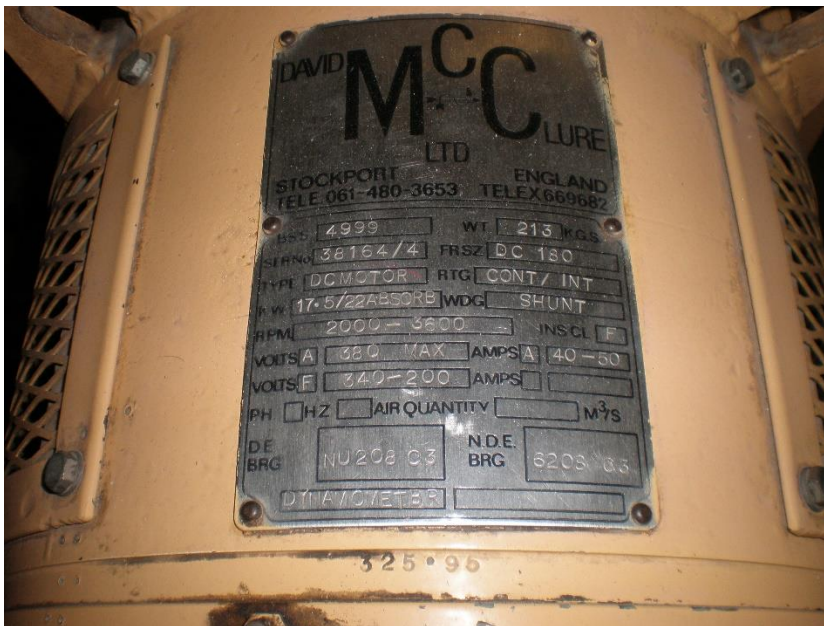 DAVID McCLURE
LTD
STOCKPORT ENGLAND
TELE 061-480-3653 TELEX 669682
BSS 4999 WT. 213 KGS
SER No 38164/4 FR SZ DC 180
TYPE DC MOTOR RTG CONT/ INT
K.W. 17.5/22 ABSORB WDG SHUNT
RPM 2000-3600 INS CL F
VOLTS A 380 MAX AMPS A 40-50
VOLTS F 340-200 AMPS
PH HZ AIR QUANTITY M³/S
DE BRG NU208 C3 N.D.E. BRG 6208 C3
325•95